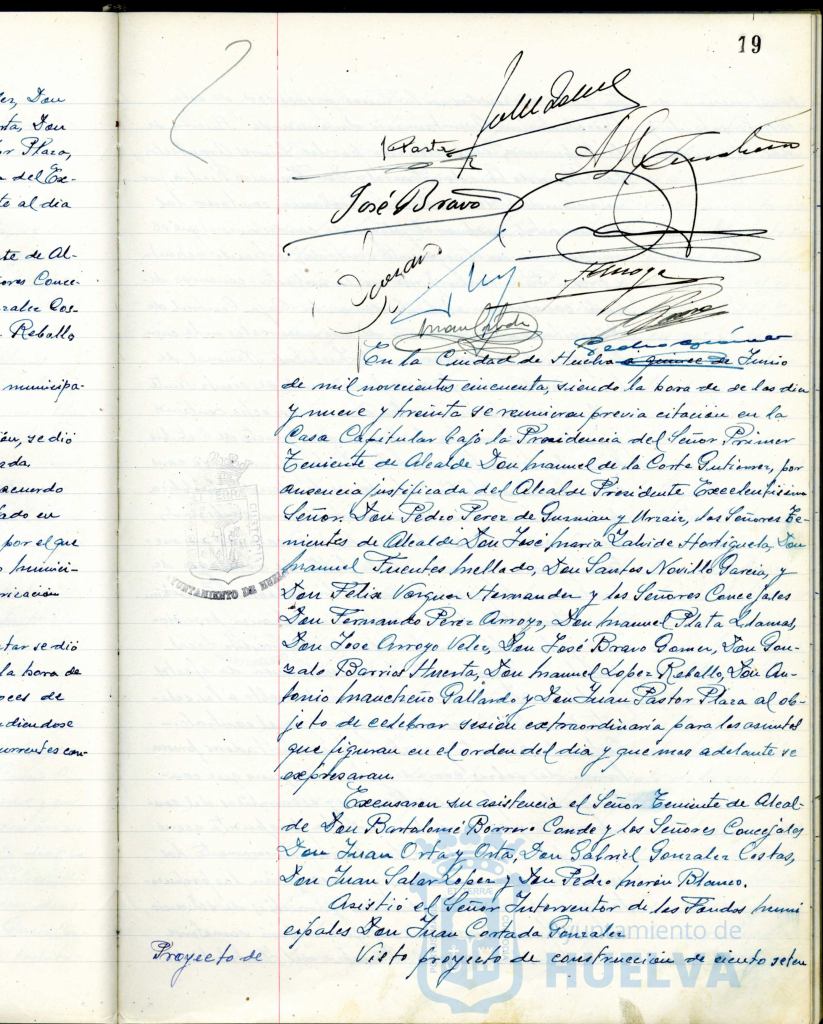 19
José Bravo
En la Ciudad de Huelva a quince de Junio
de mil novecientos cincuenta, siendo la hora de de las diez
y nueve y treinta se reunieron previa citación en la
Casa Capitular bajo la Presidencia del Señor Primer
Teniente de Alcalde Don Manuel de la Corte Gutierrez, por
ausencia justificada del Alcalde Presidente Excelentísimo
Señor. Don Pedro Perez de Guzman y Urzaiz, los Señores Te-
nientes de Alcalde Don José Maria Zalvide Hortigüela, Don
Manuel Fuentes Mellado, Don Santos Novillo Garcia, y
Don Félix Vazquez Hernandez y los Señores Concejales
Don Fernando Perez Arroyo, Don Manuel Plata
Don Jose Arroyo Velez, Don José Bravo Gomez, Don Gon-
zalo Barrios Huerta, Don Manuel Lopez Reballo, Don An-
tonio Mancheño Gallardo y Don Juan Pastor Plaza al ob-
jeto de celebrar sesión extraordinaria para los asuntos
que figuran en el orden del dia y que mas adelante se
expresaran.
Excusaron su asistencia el Señor Teniente de Alcal-
de Don Bartolomé Borrero Conde y los Señores Concejales
Don Juan Orta y Orta, Don Gabriel Gonzalez Costas,
Don Juan Salar Lopez y Don Pedro Morón Blanco.
Asistió el Señor Interventor de los Fondos muni
cipales Don Juan Cortada Gonzalez
Proyecto de
Visto proyecto de construccion de ciento seten
AYUNTAMIENTO DE HUELVA
Ayuntamiento de
HUELVA
er, Don
ta, Don
or Plaza,
del Ex-
to al dia
te de Al-
ores Conce-
zalez Cos-
Reballo
municipa-
ón, se dió
ada.
acuerdo
ado en
por el que
munici-
ricación
tar se dió
la hora de
oces de
ndiendose
urrentes con-